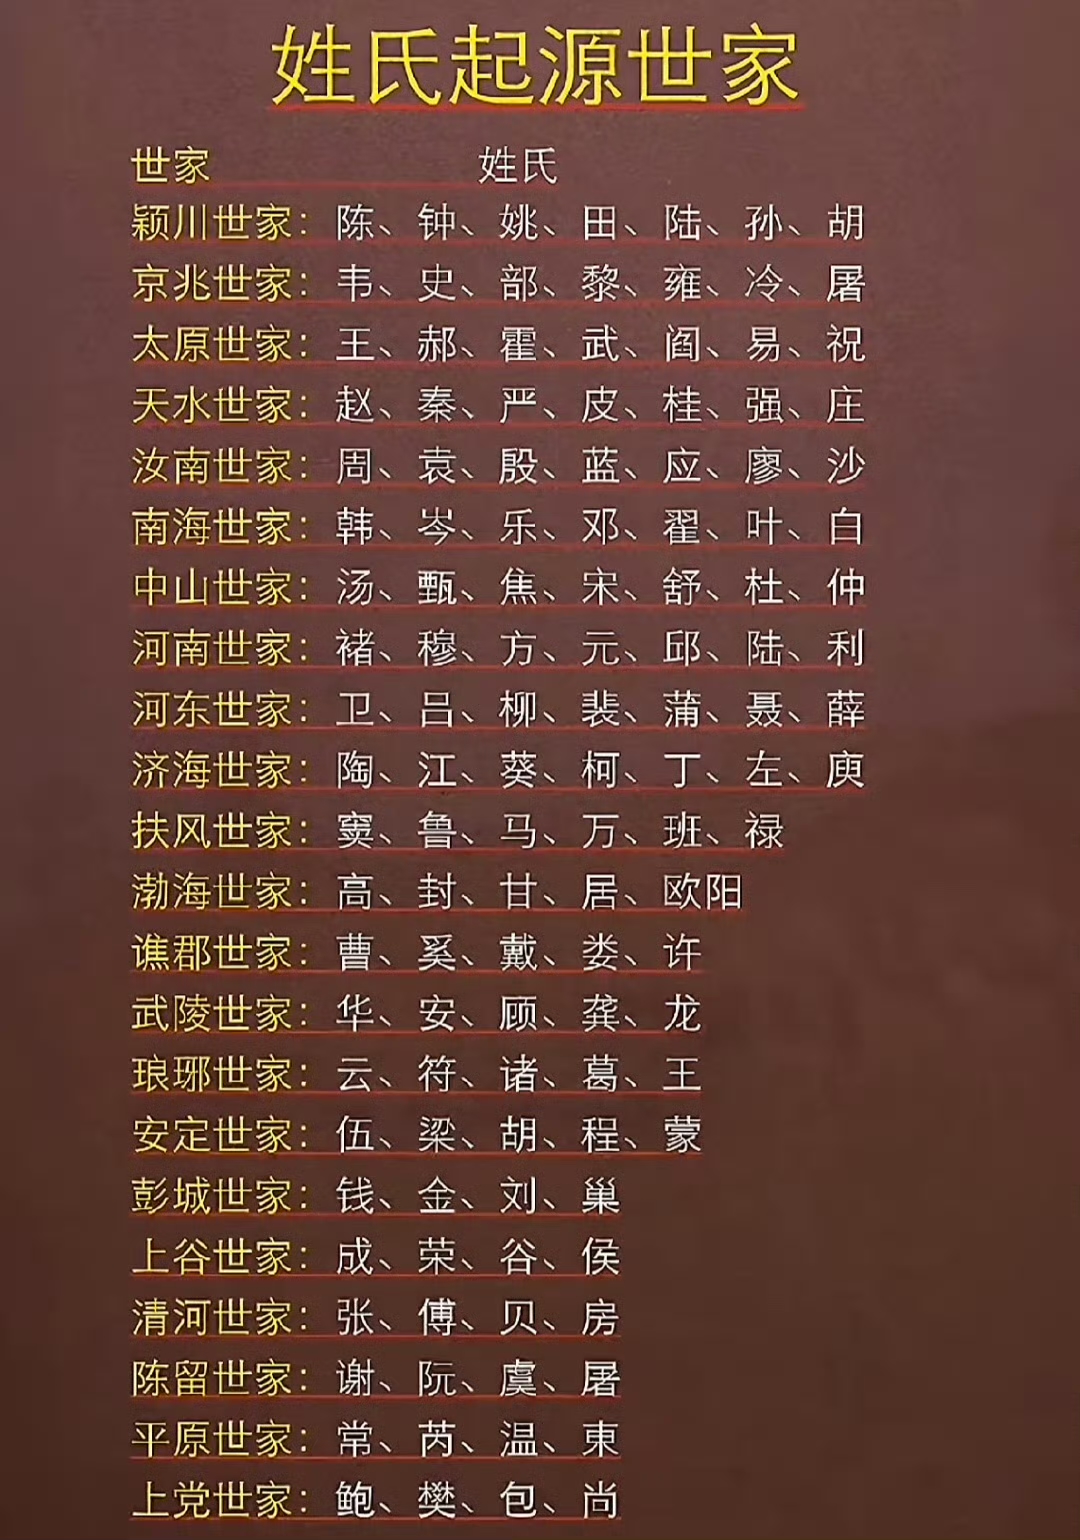 姓氏起源世家
世家 姓氏
颖川世家：陈、钟、姚、田、陆、孙、胡
京兆世家：韦、史、部、黎、雍、冷、屠
太原世家：王、郝、霍、武、阎、易、祝
天水世家：赵、秦、严、皮、桂、强、庄
汝南世家：周、袁、殷、蓝、应、廖、沙
南海世家：韩、岑、乐、邓、翟、叶、白
中山世家：汤、甄、焦、宋、舒、杜、仲
河南世家：褚、穆、方、元、邱、陆、利
河东世家：卫、吕、柳、裴、蒲、聂、薛
济海世家：陶、江、葵、柯、丁、左、庾
扶风世家：窦、鲁、马、万、班、禄
渤海世家：高、封、甘、居、欧阳
谯郡世家：曹、奚、戴、娄、许
武陵世家：华、安、顾、龚、龙
琅琊世家：云、符、诸、葛、王
安定世家：伍、梁、胡、程、蒙
彭城世家：钱、金、刘、巢
上谷世家：成、荣、谷、侯
清河世家：张、傅、贝、房
陈留世家：谢、阮、虞、屠
平原世家：常、芮、温、東
上党世家：鲍、樊、包、尚